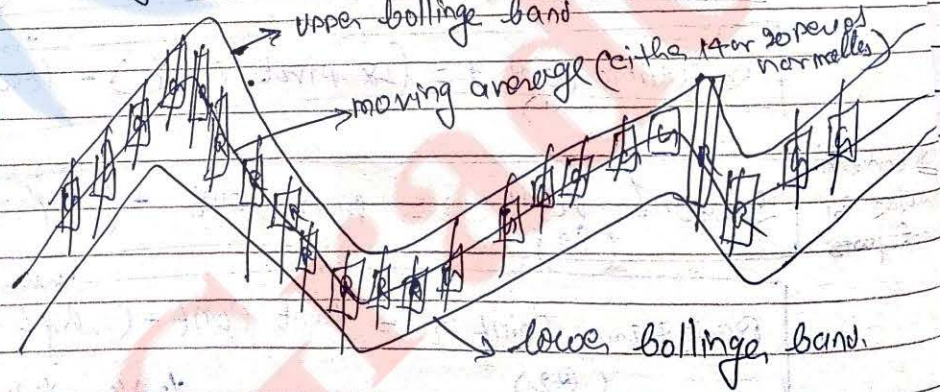 upper bollinge band
moving average (eithe 14 or 20 perods
normelles)
lowe bollinge band.